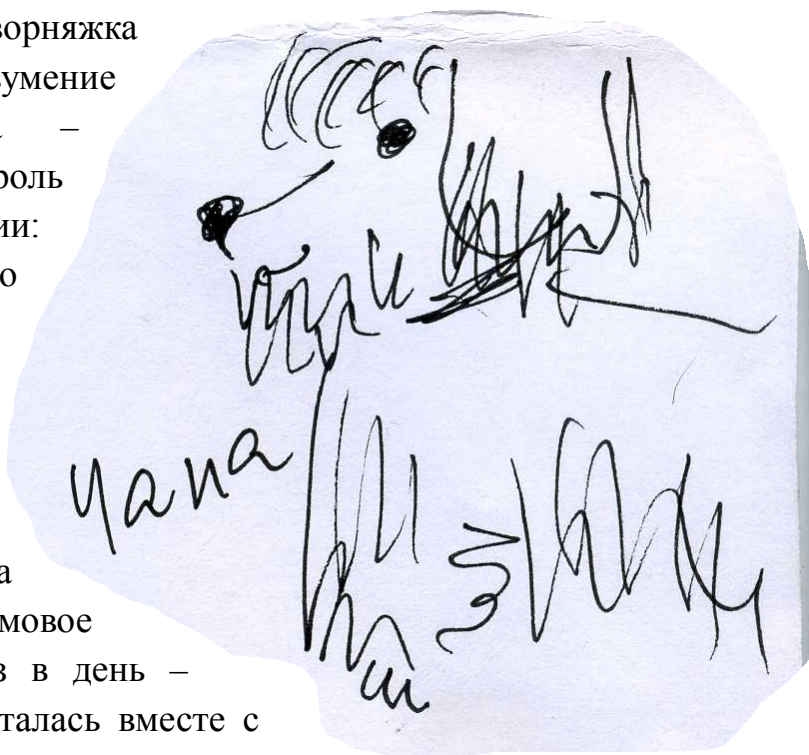 ворняжка
зумение
–
роль
ии:
о
Чапа
а
мовое
в в день –
талась вместе с